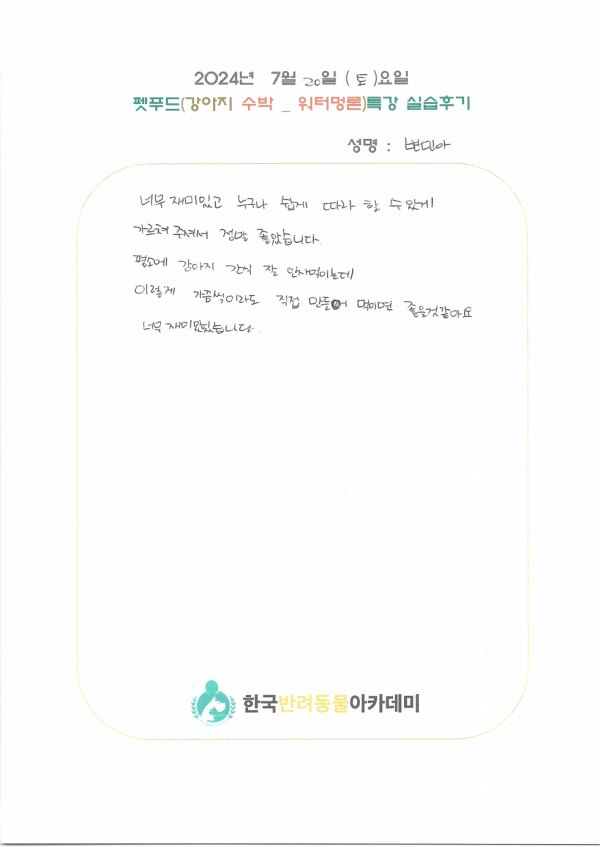 2024년 7월 20일 (토)요일
펫푸드(강아지 수박 _ 워터멍론)특강 실습후기
성명 : 변민아
너무 재미있고 누구나 쉽게 따라 할 수 있게
가르쳐 주셔서 정말 좋았습니다.
평소에 강아지 간식 잘 안사먹이는데
이렇게 가끔씩이라도 직접 만들어 먹이면 좋을것같아요
너무 재미있었습니다.
한국반려동물아카데미